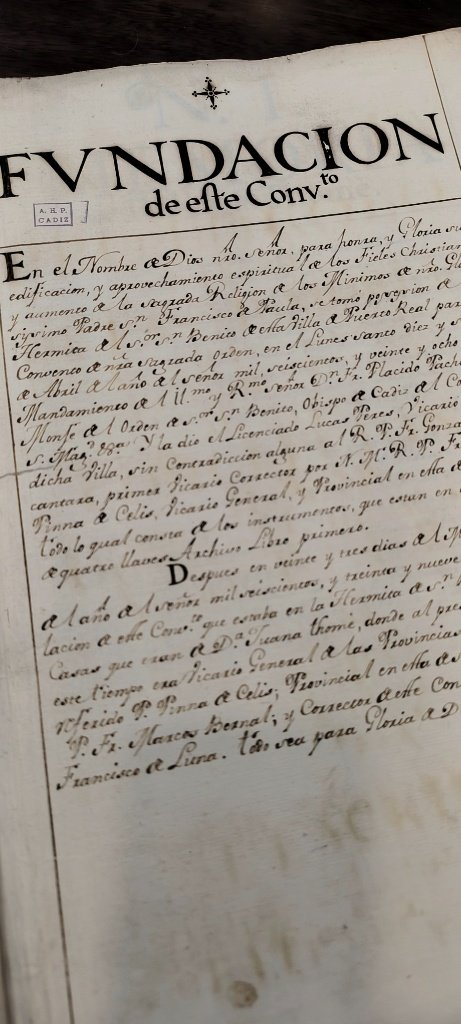 FVNDACION
de este Conv.to
A. H. P.
CADIZ
En el Nombre de Dios nro. Señor, para honra, y Gloria su
edificacion, y aprovechamiento espiritual de los Fieles Christian
y aumento de la sagrada Religion de los Minimos de nro. Glo
sissimo Padre Sn. Francisco de Paula, se tomó possession de
Hermita del Sor. Sn. Benito de esta Villa de Puerto Real par
Convento de nra sagrada orden, en el Lunes santo diez y s
de Abril del año del señor mil, seiscientos, y veinte y ocho
Mandamiento del Il.mo y R.mo Señor Dn. Fr. Placido Pach
Monje del Orden de Sor. Sn. Benito, Obispo de Cadiz del Co
S. Mag.d &a. Y la dio el Licenciado Lucas Peres, Vicario
dicha Villa, sin Contradiccion alguna al R. P. Fr. Gonza
cantara, primer Vicario Corrector por N. M. R. P. Fr
Pinna de Celis, Vicario General, y Provincial en esta
todo lo qual consta de los instrumentos, que estan en
de quatro llaves Archivo Libro primero.
Despues en veinte y tres dias del M
del año del señor mil seiscientos, y treinta y nueve
lacion de este Conv.to que estaba en la Hermita de Sn.
Casas que eran de Da. Juana thome, donde al pre
este tiempo era Vicario General de las Provincias
referido P. Pinna de Celis; Provincial en esta de
P. Fr. Marcos Bernal; y Corrector de este Con
Francisco de Luna. todo sea para Gloria de D